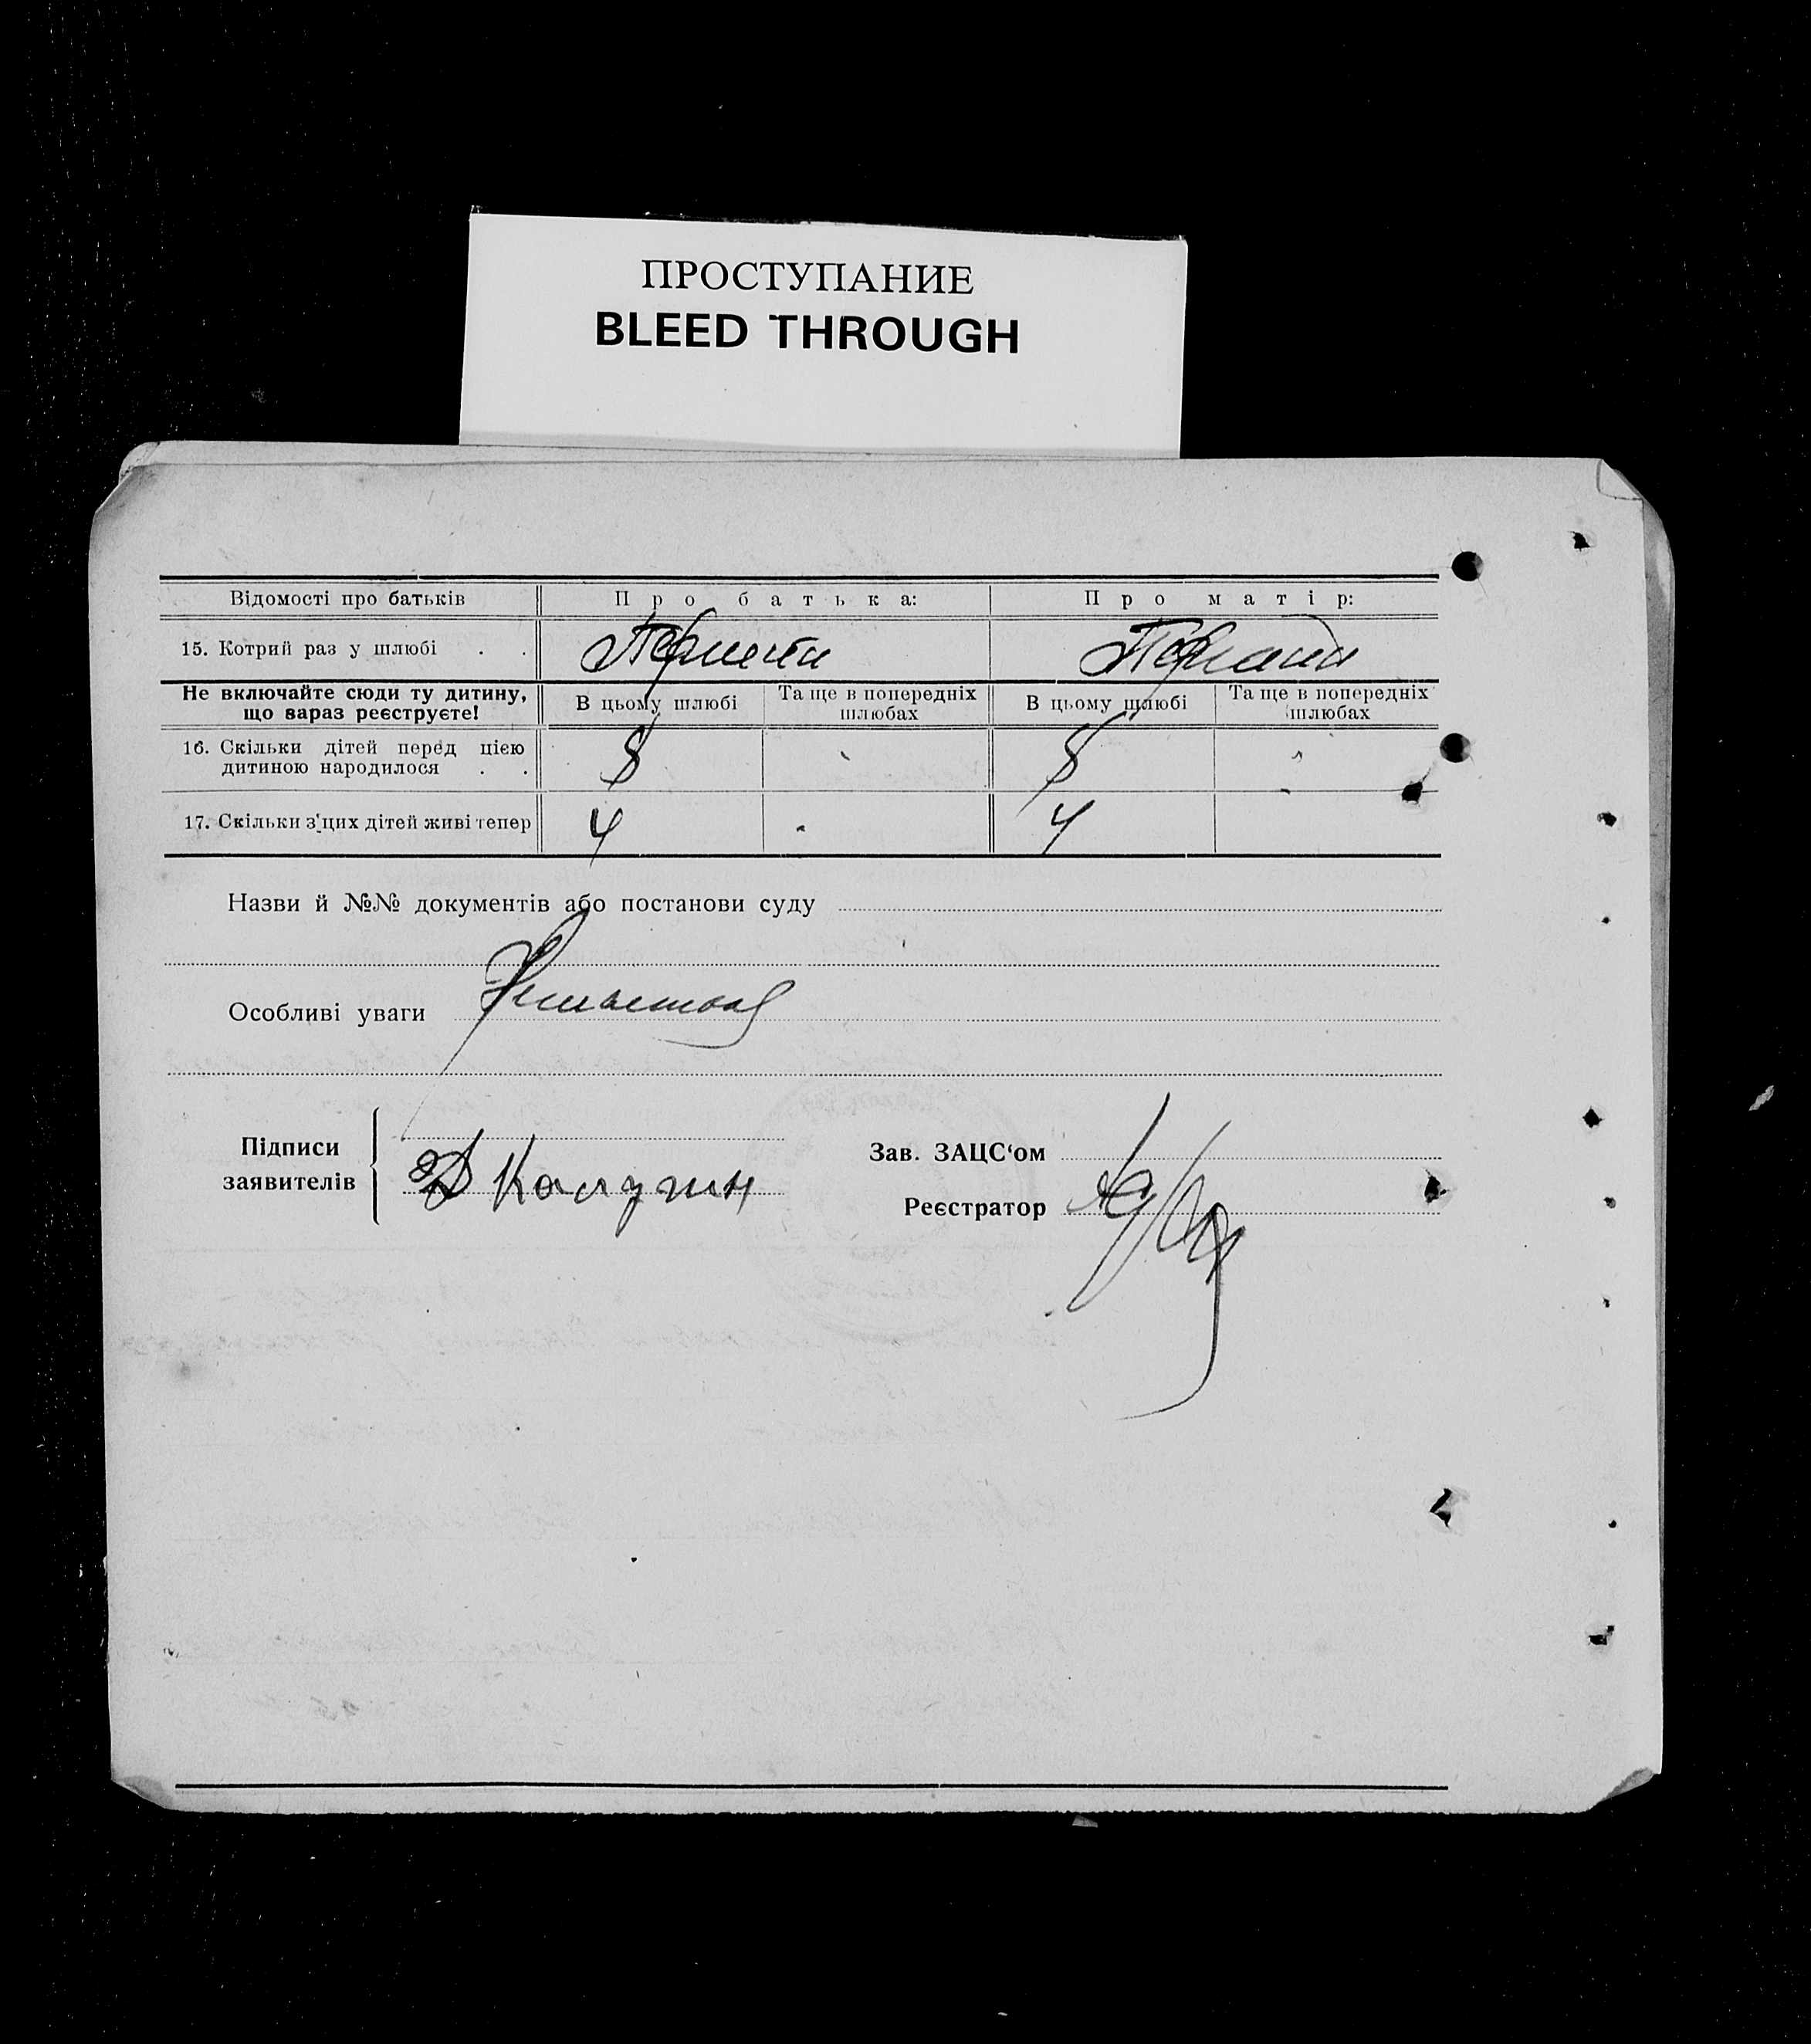 ПРОСТУПАНИЕ
BLEED THROUGH
Відомості про батьків Про батька: Про матір:
15. Котрий раз у шлюбі . .
Не включайте сюди ту дитину, що зараз реєструєте! В цьому шлюбі Та ще в попередніх шлюбах В цьому шлюбі Та ще в попередніх шлюбах
16. Скільки дітей перед цією дитиною народилося . .
17. Скільки з цих дітей живі тепер 4 4
Назви й №№ документів або постанови суду
Особливі уваги
Підписи заявителів
Калугин
Зав. ЗАЦС‘ом
Реєстратор